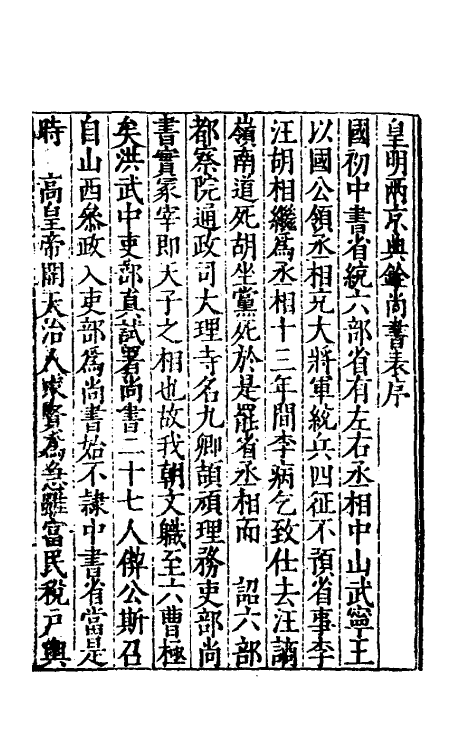 皇明兩京典銓尚書表序
國初中書省統六部省有左右丞相中山武寧王
以國公領丞相兄大將軍統兵四征不預省事李
汪胡相繼爲丞相十三年間李病乞致仕去汪謫
嶺南道死胡坐黨死於是罷省丞相而 詔六部
都察院通政司大理寺名九卿頡頏理務吏部尚
書實冢宰即天子之相也故我朝文職至六曹極
矣洪武中吏部真試署尚書二十七人偰公斯召
自山西叅政入吏部爲尚書始不隷中書省當是
時 高皇帝開大治人求賢爲急雖富民稅戸輿